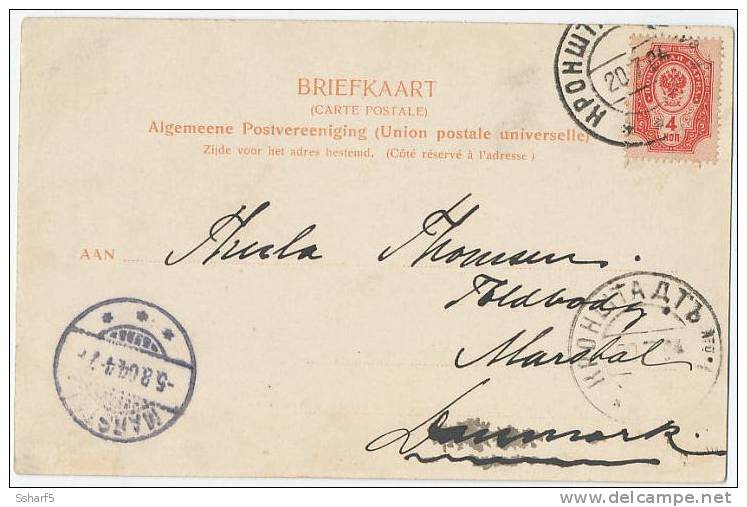 BRIEFKAART
(CARTE POSTALE)
Algemeene Postvereeniging (Union postale universelle)
Zijde voor het adres bestemd. (Côté réservé à l'adresse)
КРОНШТ
20.7.04
4
КОП
AAN Thula Thomsen.
Toldbod,
Marstal
Danmark.
КРОНШТАДТЪ
5.8.04.4-7
MARSTAL
Ssharf5
©delcampe.net